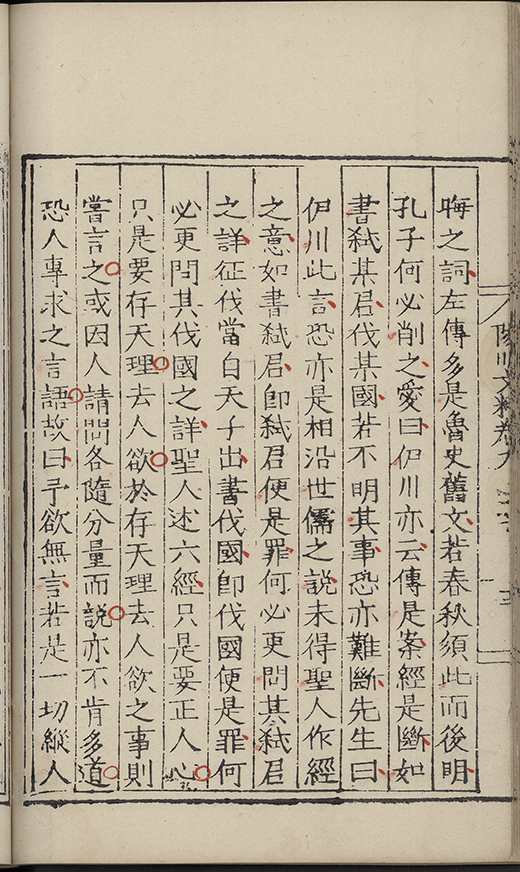 晦之詞左傳多是魯史舊文若春秋須此而後明
孔子何必削之愛曰伊川亦云傳是案經是斷如
書弑某君伐某國若不明其事恐亦難斷先生曰
伊川此言恐亦是相沿世儒之說未得聖人作經
之意如書弑君即弑君便是罪何必更問其弑君
之詳征伐當自天子出書伐國即伐國便是罪何
必更問其伐國之詳聖人述六經只是要正人心
只是要存天理去人欲於存天理去人欲之事則
嘗言之或因人請問各隨分量而說亦不肯多道
恐人專求之言語故曰予欲無言若是一切縱人